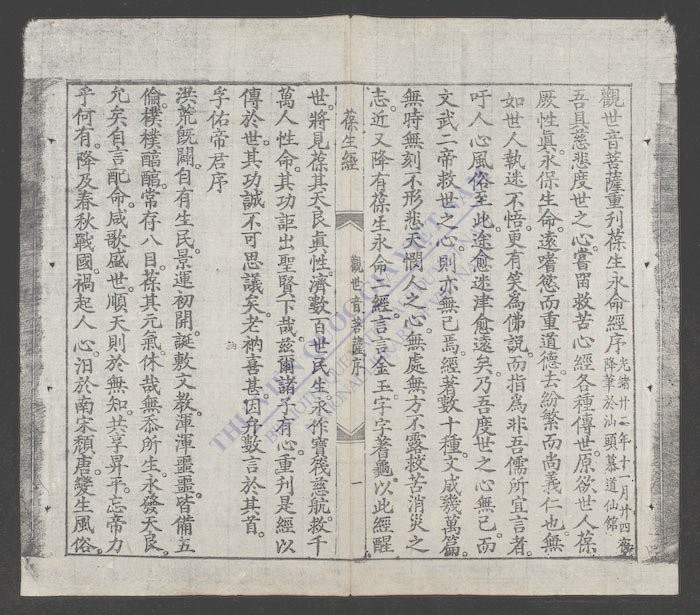 觀世音菩薩重刊葆生永命經序 光緒廿二年十一月廿四夜 降筆於汕頭慕道仙館
吾具慈悲度世之心。嘗留救苦心經各種傳世。原欲世人葆
厥性眞。永保生命。遠嗜慾而重道德。去紛繁而尚義仁也。無
如世人執迷不悟。更有笑為佛說。而指為非吾儒所宜言者。
吁人心風俗至此。途愈迷津愈遠矣。乃吾度世之心無已。而
文武二帝救世之心。則亦無已焉。經著數十種。文成幾萬篇。
無時無刻不形悲天憫人之心。無處無方不露救苦消災之
志。近又降有葆生永命一經。言言金玉。字字著龜。以此經醒
世。將見葆其天良眞性。濟數百世民生。永作寶筏慈航。救千
萬人性命。其功詎出聖賢下哉。茲爾諸子有心。重刊是經以
傳於世。其功誠不可思議矣。老衲喜甚。因弁數言於其首。
孚佑帝君序
洪荒旣闢。自有生民。景運初開。誕敷文教。渾渾噩噩。皆備五
倫。樸樸醕醕。常存八目。葆其元氣。休哉無忝所生。永發天良。
允矣自言配命。咸歌盛世。順天則於無知。共享昇平。忘帝力
乎何有。降及春秋戰國。禍起人心。汨於南宋頹唐。變生風俗。
葆生經
觀世音菩薩序
一
THƯ VIỆN QUỐC GIA VIỆT NAM